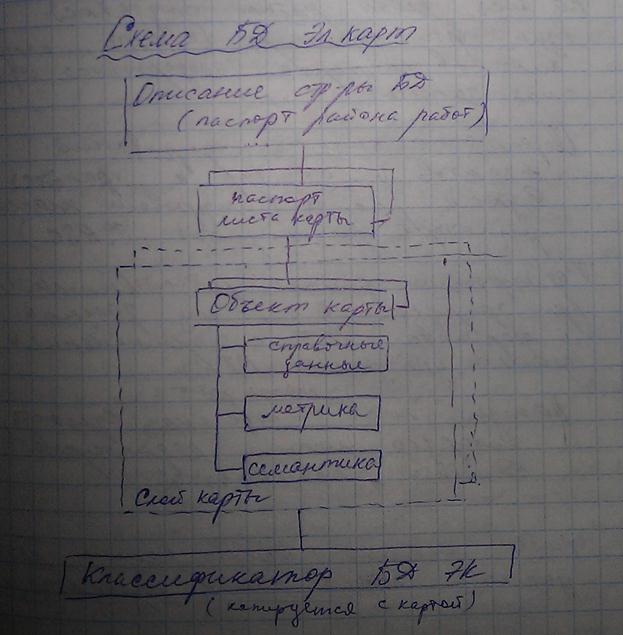 Схема БД Эл карт
Описание стр-ры БД
(паспорт района работ)
паспорт
листа карты
Объект карты
справочные
данные
метрика
семантика
Слой карты
Классификатор БД ЭК
(копируется с картой)